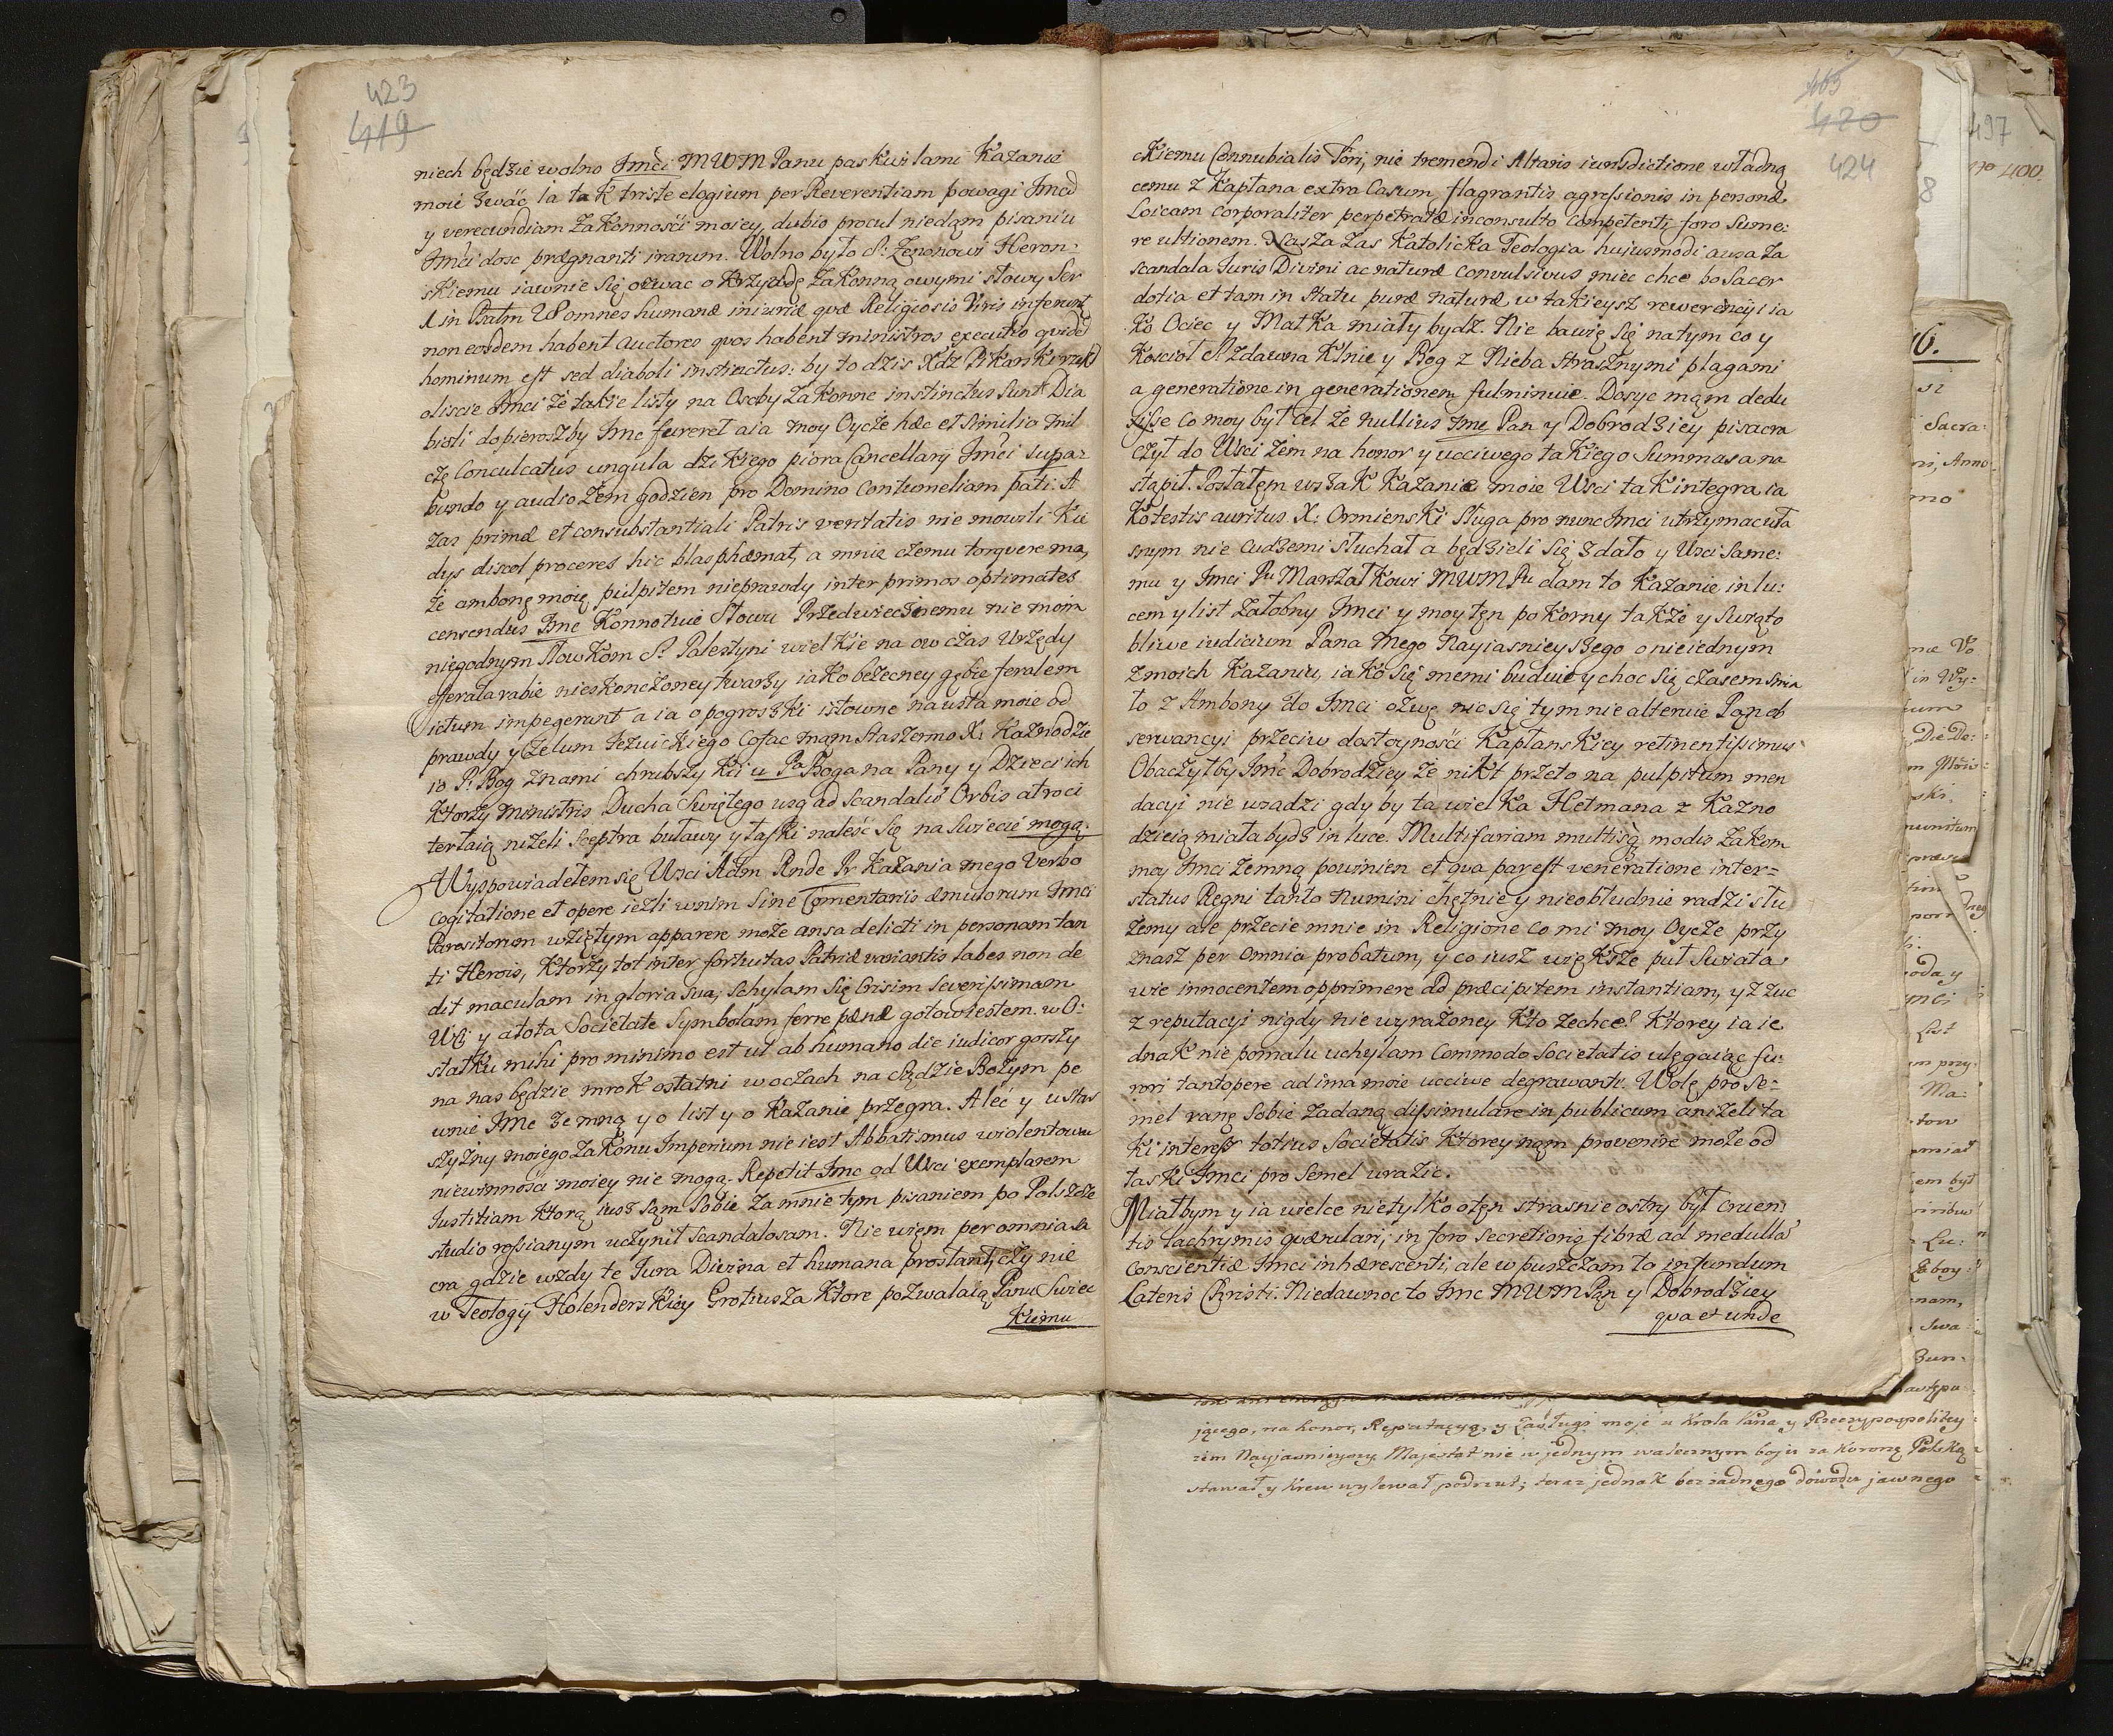 423
419
niech będzie wolno Jmći MWM Panu paskwilami Kazanie
moie zwáć ia tak triste elogium per Reverentiam powagi Jmci
y verecundiam Zakonnośći moiey, dubio procul niedąm pisaniu
Jmći dosc prægnanti irarum. Wolno było S. Zenonowi Heron:
skiemu iawnie się ozwac o Krzywdę Zakonną owymi słowy Ser
1 in Psalm omnes humanæ iniuriæ qvæ Religiosis Viris inferunt
non eosdem habent auctores qvos habent ministros executio qvidẽ
hominum est sed diaboli instinctus: by to dzis Xdz
oliscie Jmci że takie listy na Osoby Zakonne instinctus sunt Dia
boli dopieroszby Jmc fureret a ia moy Oycze hæc et similia mil
czę Conculcatus ungula dzikiego piora Cancellarij Jmći
bundo y audio żem godzien pro Domino contumeliam pati: A
zas primæ et consubstantiali Patris veritatis nie mowili Kie
dys discol proceres hic blasphæmat, a mnie czemu torqvere ma,
że ambonę moię pulpitem nieprawdy inter primos optimates
censendus Jme Konnotuie Słowu Przedwiecżnemu nie moim
niegodnym słowkom S. Palestyni wielkie na ow czas Urzędy
efferata rabie nieskonczoney twarzy iako bezecney gębie feralem
ictum impegerunt a ia o pogroszki istowne na usta moie od
prawdy y Zelum Jezuickiego Cofac mąm Stas X. Kaznodzie
io P. Bog z nami chrubszy Kci u Pa Boga na Pany y Dzieci ich
Ktorzy ministris Ducha Swiętego usq ad scandalũ Orbis atroci
tertaią niżeli Sceptra buławy y łaski naleść się na swiecie mogą.
Wyspowiadełem się Wsci Adm Rnde Pr Kazania mego Verbo
cogitatione et opere ieżli w nim Sine Commentariis æmulorum Jmci
Parositorum wziętym apparere może ansa delicti in personam tan
ti Herois, Ktorży tot inter fortunas Patriæ variantis labes non de
dit maculam in gloria sua, schylam się Crisim Severissimam
Wsći y a tota Societate Symbolam ferre pænæ gotow iestem. w O:
statku mihi pro minimo est ut ab humano die iudicor gorszy
na nas będzie mrok ostatni w oczach na Sądzie Bożym pe
wnie Jme ze mną y o list y o Kazanie przegra. Aleć y u stas
szyzny moiego Zakonu Imperium nie iest Abbatismus wiolentowau
niewinnośći moiey nie mogą. Repetit Jmc od Wsci exemplarem
Justitiam Ktorą iusz sąm sobie za mnie tym pisaniem po Polszcze
studio rossianym uczynił scandalosam. Nie więm per omnia sa
cra gdzie wżdy te Jura Divina et humana prostant, czy nie
w Teology Holenderskiey Grotiusza Ktore pozwalaią Panu Swiec
Kiemu
420
424
ckiemu Connubialis Tori, nie tremendi Altaris iurisdictione władną
cemu z Kapłana extra Casum flagrantis agressionis in personæ
Loicam corporaliter perpetratæ inconsulto Competenti foro Sume:
re ultionem. Nasza zas Katolicka Teologia hujusmodi ausa za
scandala Juris Divini ac naturæ convulsivus miec chce bo Sacer
dotia et tam in statu puræ naturæ w takieysz rewerencyi ia
ko Ociec y Matka miały bydz. Nie bawię się natym co y
Koscioł S. zdawna Klnie y Bog z Nieba strasznymi plagami
a generatione in generationem fulminuie. Dosyc mąm dedu
xisse co moy był cel że nullius Jmc Pan y Dobrodziey pisacra
czył do Wsci żem na honor y ucciwego takiego Summasa na
stąpił. Posłałęm wszak Kazanie moie Wsci tak integra ia
ko testis auritus X. Ormienski sługa pro nunc Jmci utrzymacuła
snym nie cudzemi słuchał a będzieli się zdało y Wsci same:
mu y Jmci Pu Marszałkowi MWM Pu dam to Kazanie in lu:
cem y list żałobny Jmci y moy tęn pokorny także y Swąto
bliwe iudicium Pana mego Nayiasnieyszego o nieiednym
z moich Kazaniu, iako się niemi buduie y choc się czasem smia
ło z Ambony do Jmci ozwę nic się tym nie alteruie Pąn ob
serwancyi przeciw dostoynośći Kapłanskiey retinentissimus
Obaczyłby Jmc Dobrodziey że nikt przeto na pulpitum men
dacyi nie wsadzi gdy by ta wielka Hetmana z Kazno
dzieią miała bydz in luce. Multifariam multisq modis Zakom
moy Jmci zemną powinien et qva par est veneratione inter=
status Regni tanto Numini chętnie y nieobłudnie radzi słu
żemy ale przecie mnie in Religione co mi moy Oycze przy
znasz per omnia probatum, y co iusz większe puł Swiata
wie innocentem opprimere ad præcipitem instantiam, y zzuc
z reputacyi nigdy nie wyrażoney Kto zechce? Ktorey ia ie
dnak nie pomalu uchylam Commodo Societatis ulęgaiąc fu:
rori tantopere ad ima moie ucciwe degrawanti. Wolę pro se=
mel ranę sobie zadaną dissimulare in publicum aniżeli ta
ki interess totius Societatis Ktorey nąm provenire może od
łaski Jmci pro semel urazic.
Miałbym y ia wielce nietylko o tęn strasnie ostry był cruen:
tis lachrymis qværulari, in foro secretioris fibræ ad medullã
conscientiæ Jmci inhærescenti, ale w puszczam to in fundum
Lateris Christi. Niedawnoc to Jmc MWM Pąn y Dobrodziey
qva et unde
jącego, na honor, Reputacyą, y zasługi moje u Krola Pana y Rzeczypospolitey
zem Nayjasnieyszy Majestat nie w jednym walecznym boju za Koronę Polską
stawał y Krew wylewał podrzut; teraz jednak bez zadnego dowodu jawnego
497
No 400.